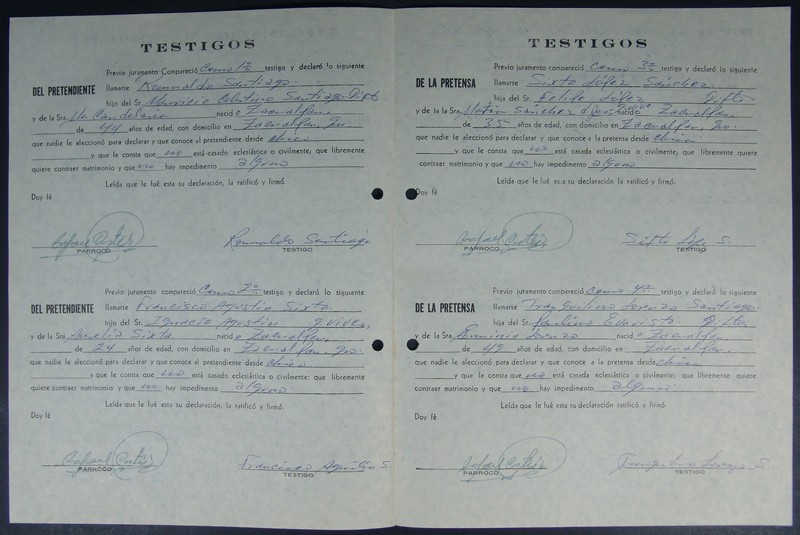 TESTIGOS
Previo juramento Compareció Como 1er testigo y declaró lo siguiente
DEL PRETENDIENTE llamarse Reynaldo Santiago
hijo del Sr. Mauricio Celestino Santiago Difto
y de la Sra. Ma Candelaria nació e Zacualpan,
de 44 años de edad, con domicilio en Zacualpan,
que nadie le aleccionó para declarar y que conoce al pretendiente desde chico
y que le consta que no está casado eclesiástica o civilmente; que libremente
quiere contraer matrimonio y que no hay impedimento alguno
Leída que le fué esta su declaración, la ratificó y firmó.
Doy fé
Rafael Cortés
PARROCO
Reynaldo Santiago
TESTIGO
Previo juramento compareció Como 2o testigo y declaró lo siguiente
DEL PRETENDIENTE llamarse Francisco Agustín Sixto
hijo del Sr. Ignacio Agustín q vive,
y de la Sra. Amelia Sixto nació e Zacualpan,
de 24 años de edad, con domicilio en Zacualpan,
que nadie le aleccionó para declarar y que conoce al pretendiente desde chico
y que le consta que no está casado eclesiástica o civilmente; que libremente
quiere contraer matrimonio y que no hay impedimento alguno
Leída que le fué esta su declaración, la ratificó y firmó.
Doy fé
Rafael Cortés
PARROCO
Francisco Agustín S.
TESTIGO
TESTIGOS
Previo juramento compareció Como 3er testigo y declaró lo siguiente
DE LA PRETENSA llamarse Sixto López Sánchez
hijo del Sr. Felipe López Difto
y de la Sra. Sánchez nació Zacualpan,
de 55 años de edad, con domicilio en Zacualpan,
que nadie le aleccionó para declarar y que conoce a la pretensa desde chica
y que le consta que no está casada eclesiástica o civilmente; que libremente quiere
contraer matrimonio y que no hay impedimento alguno
Leída que le fué esta su declaración, la ratificó y firmó.
Doy fé
Rafael Cortés
PARROCO
Sixto López S.
TESTIGO
Previo juramento compareció Como 4o testigo y declaró lo siguiente
DE LA PRETENSA llamarse Tranquilino Lorenzo Santiago
hijo del Sr. Paulino Evaristo Difto
y de la Sra. Lorenzo nació e Zacualpan,
de 42 años de edad, con domicilio en Zacualpan,
que nadie le aleccionó para declarar y que conoce a la pretensa desde chica
y que le consta que no está casada eclesiástica o civilmente; que libremente quiere
contraer matrimonio y que no hay impedimento alguno
Leída que le fué esta su declaración, la ratificó y firmó.
Doy fé
Rafael Cortés
PARROCO
Tranquilino Lorenzo S
TESTIGO